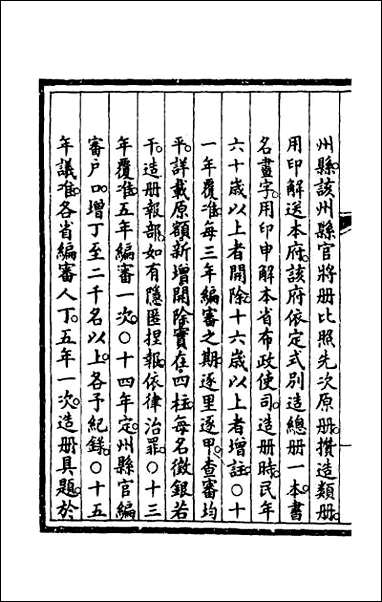 州縣該州縣官將册比照先次原册攅造類册
用印解送本府該府依定式别造總册一本書
名畫字用印申解本省布政使司造册時民年
六十歲以上者開除十六歲以上者增註○十
一年覆准每三年編審之期逐里逐甲查審均
平詳載原額新增開除實在四柱每名徵銀若
干造册報部如有隱匿捏報依律治罪○十三
年覆准五年編審一次○十四年定州縣官編
審户口增丁至二千名以上各予紀録○十五
年議准各省編審人丁五年一次造册具題於